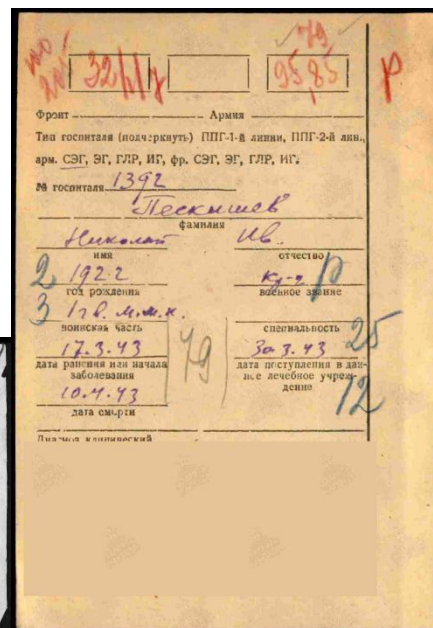 79
32/I/7
95,85
р
Фронт Армия
Тип госпиталя (подчеркнуть) ППГ-1-й линии, ППГ-2-й лин.,
арм. СЭГ, ЭГ, ГЛР, ИГ, фр. СЭГ, ЭГ, ГЛР, ИГ.
№ госпиталя 1392
Пескишев
фамилия
Николай Ив.
имя отчество
2 1922 р
год рождения военное звание
3 1 гв. м.м.к.
воинская часть специальность
17.3.43 79 30.3.43 25
дата ранения или начала заболевания
дата поступления в данное лечебное учреждение
10.4.43 12
дата смерти
Диагноз клинический